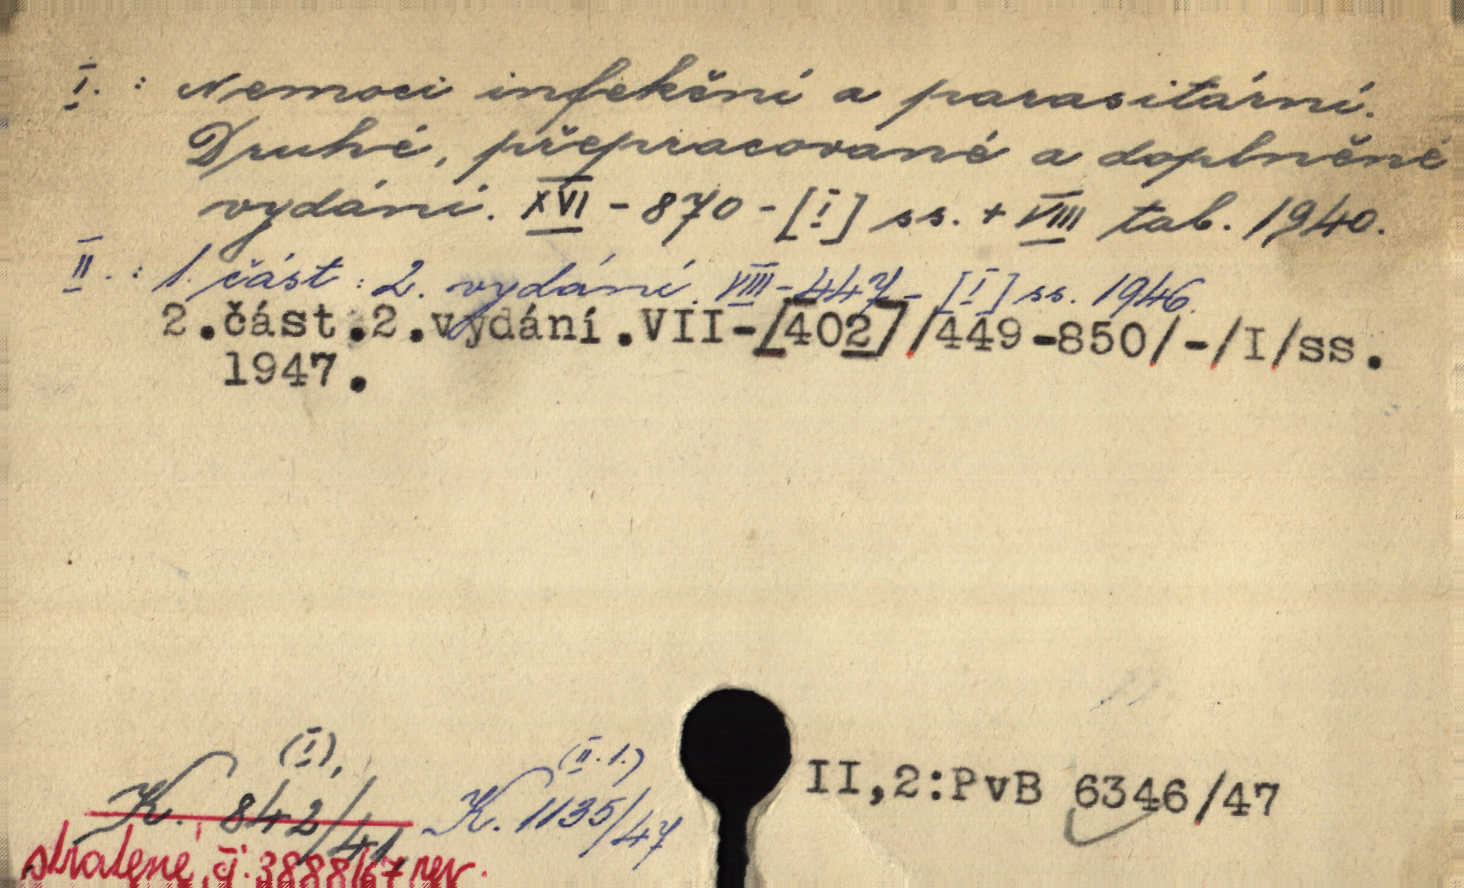 I. : Nemoci infekční a parasitární.
Druhé, přepracované a doplněné
vydání. XVI - 870 - [I] ss. + VIII tab. 1940.
II. : 1. část : 2. vydání. VIII - 447 - [I] ss. 1946.
2.část.2.vydání.VII-[402]/449-850/-/I/ss.
1947.
(I), (II.1.)
K. 842/41, K. 1135/47 II,2:PvB 6346/47
stratené, čj. 3888/67 rev.